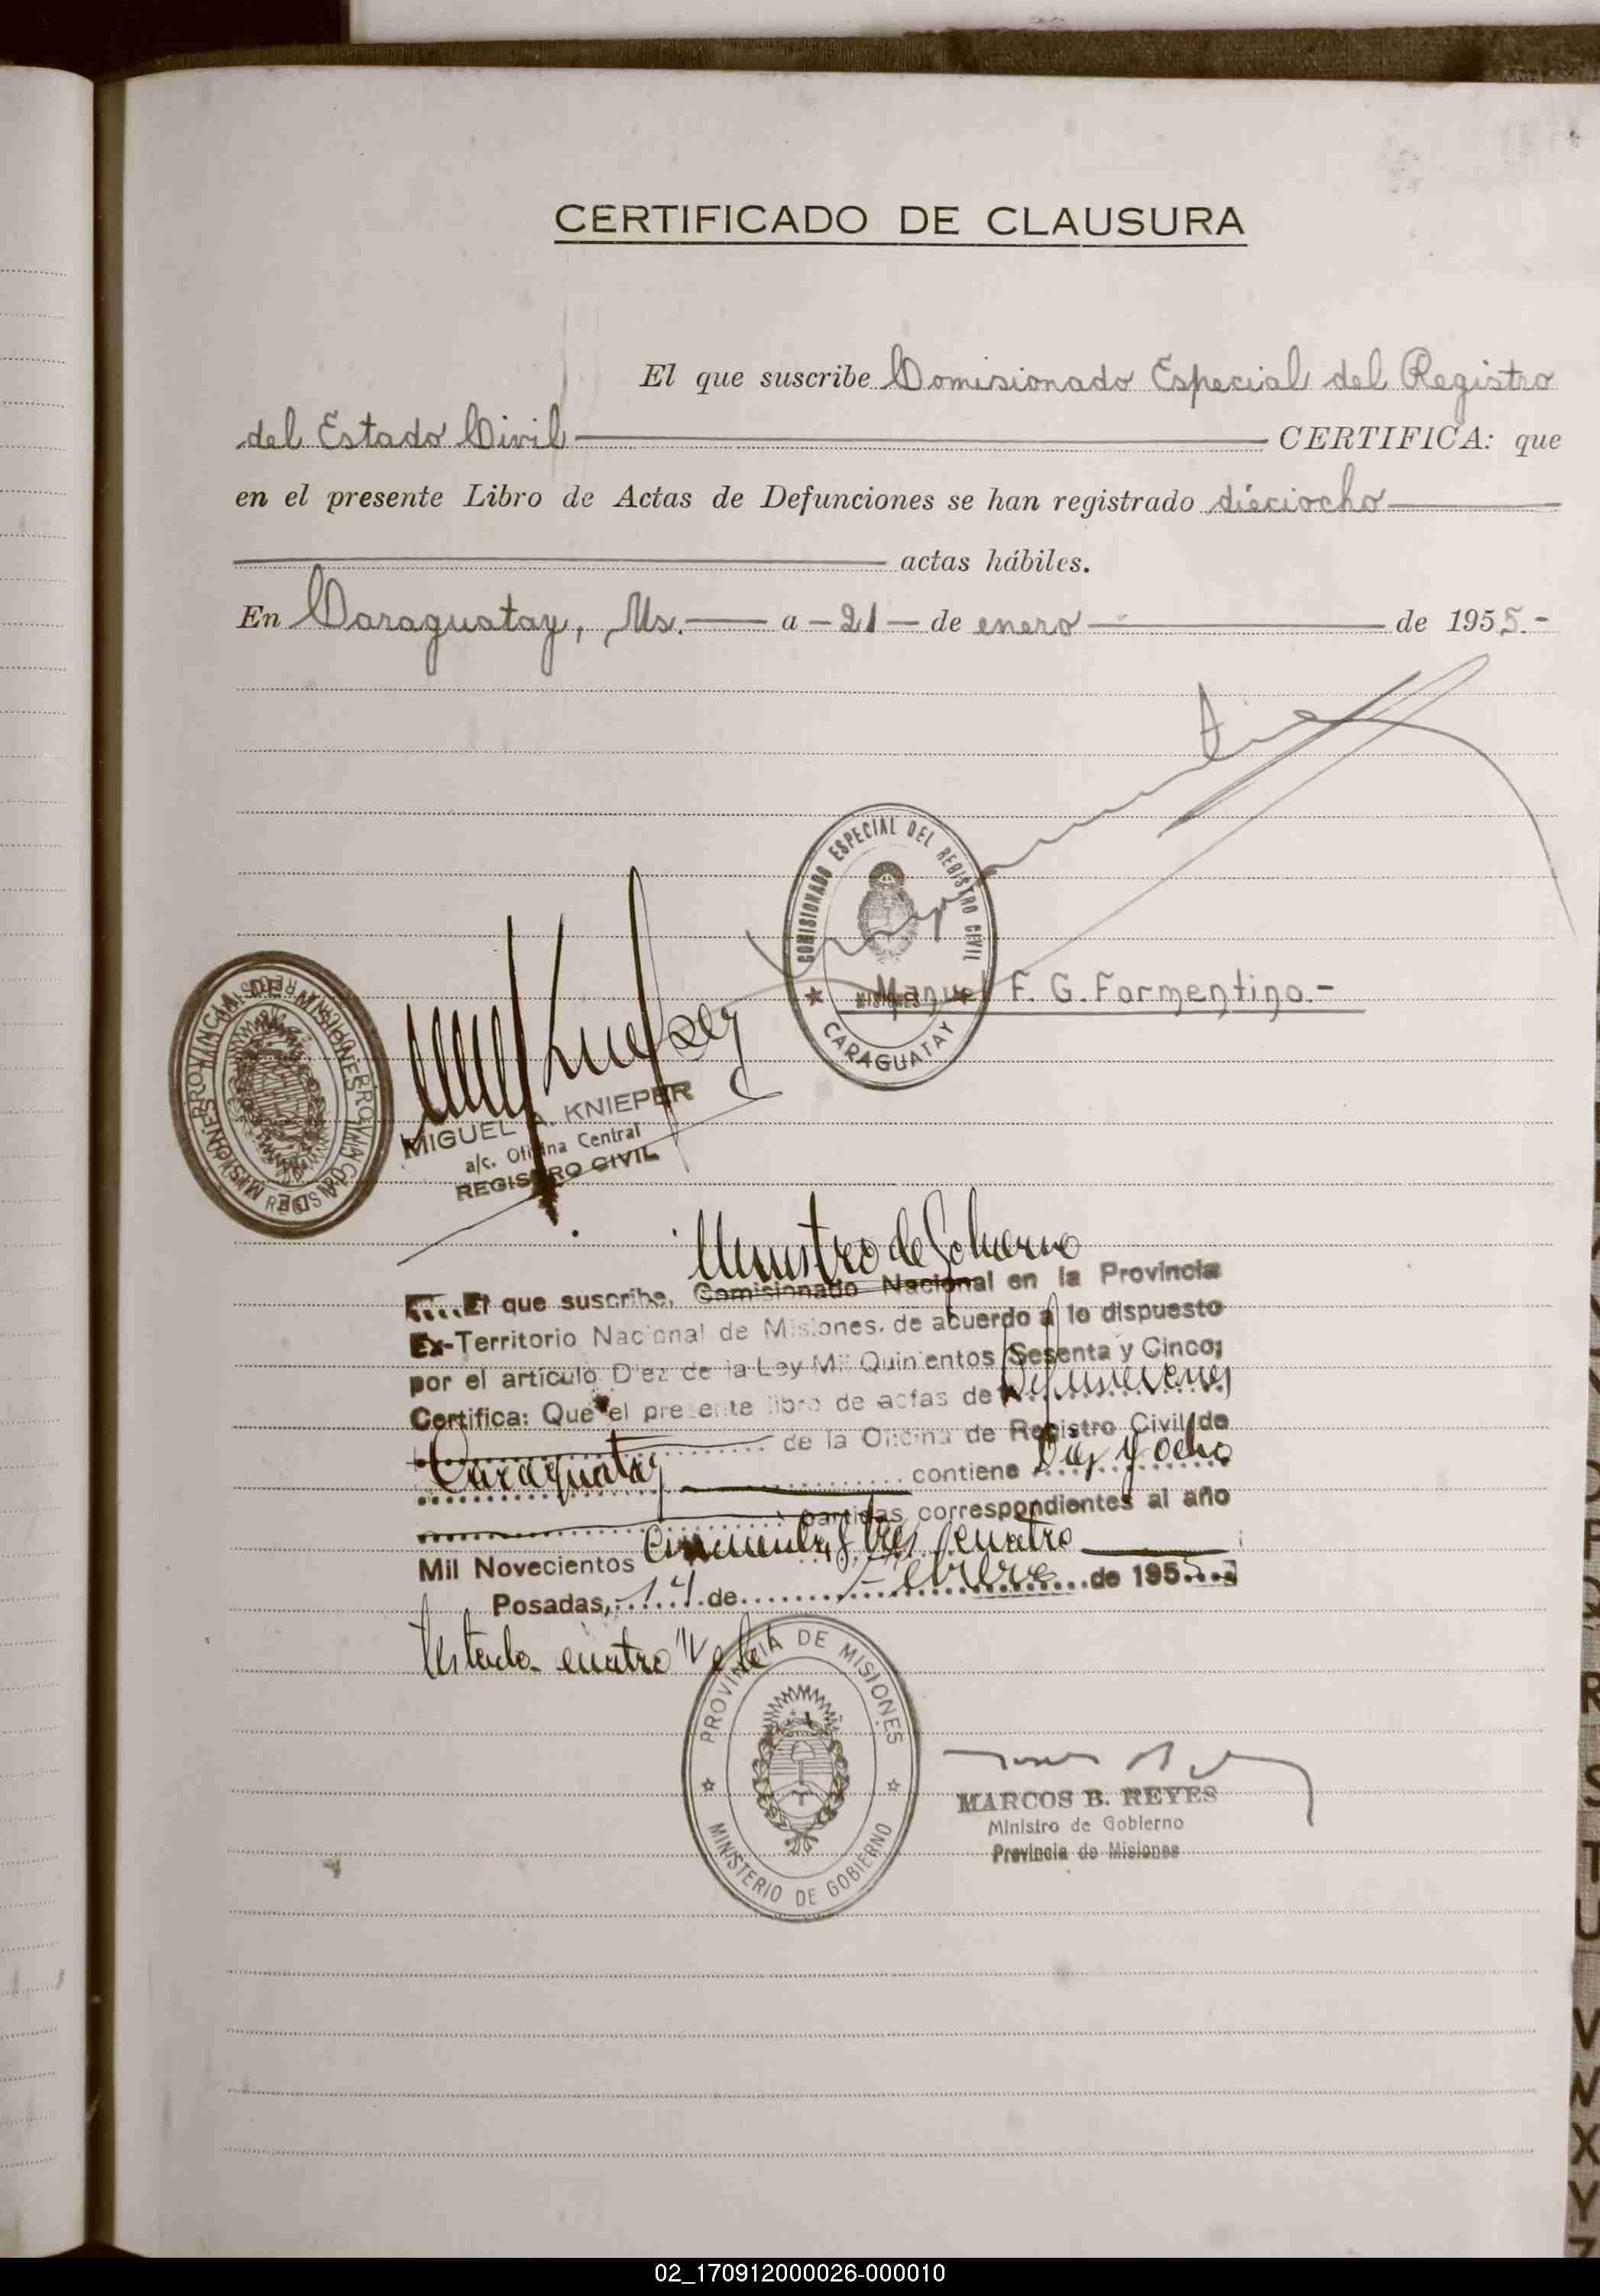 CERTIFICADO DE CLAUSURA
El que suscribe Comisionado Especial del Registro
del Estado Civil CERTIFICA: que
en el presente Libro de Actas de Defunciones se han registrado dieciocho
actas hábiles.
En Caraguatay, Ms. a - 21 - de enero de 1955.-
COMISIONADO ESPECIAL DEL REGISTRO CIVIL
MISIONES
CARAGUATAY
Manuel F. G. Formentino.-
PROVINCIA DE MISIONES
MIGUEL A. KNIEPER
a/c. Oficina Central
REGISTRO CIVIL
Ministro de Gobierno
El que suscribe, Comisionado Nacional en la Provincia
Ex-Territorio Nacional de Misiones, de acuerdo a lo dispuesto
por el artículo Diez de la Ley Mil Quinientos Sesenta y Cinco;
Certifica: Que el presente libro de actas de Defunciones
de la Oficina de Registro Civil de
Caraguatay contiene Diez y ocho
partidas correspondientes al año
Mil Novecientos Cincuenta y tres cuatro
Posadas, 14 de Febrero de 1955
Testado cuatro
PROVINCIA DE MISIONES
MINISTERIO DE GOBIERNO
MARCOS B. REYES
Ministro de Gobierno
Provincia de Misiones
R
S
T
U
V
W
X
Y
Z
02_170912000026-000010